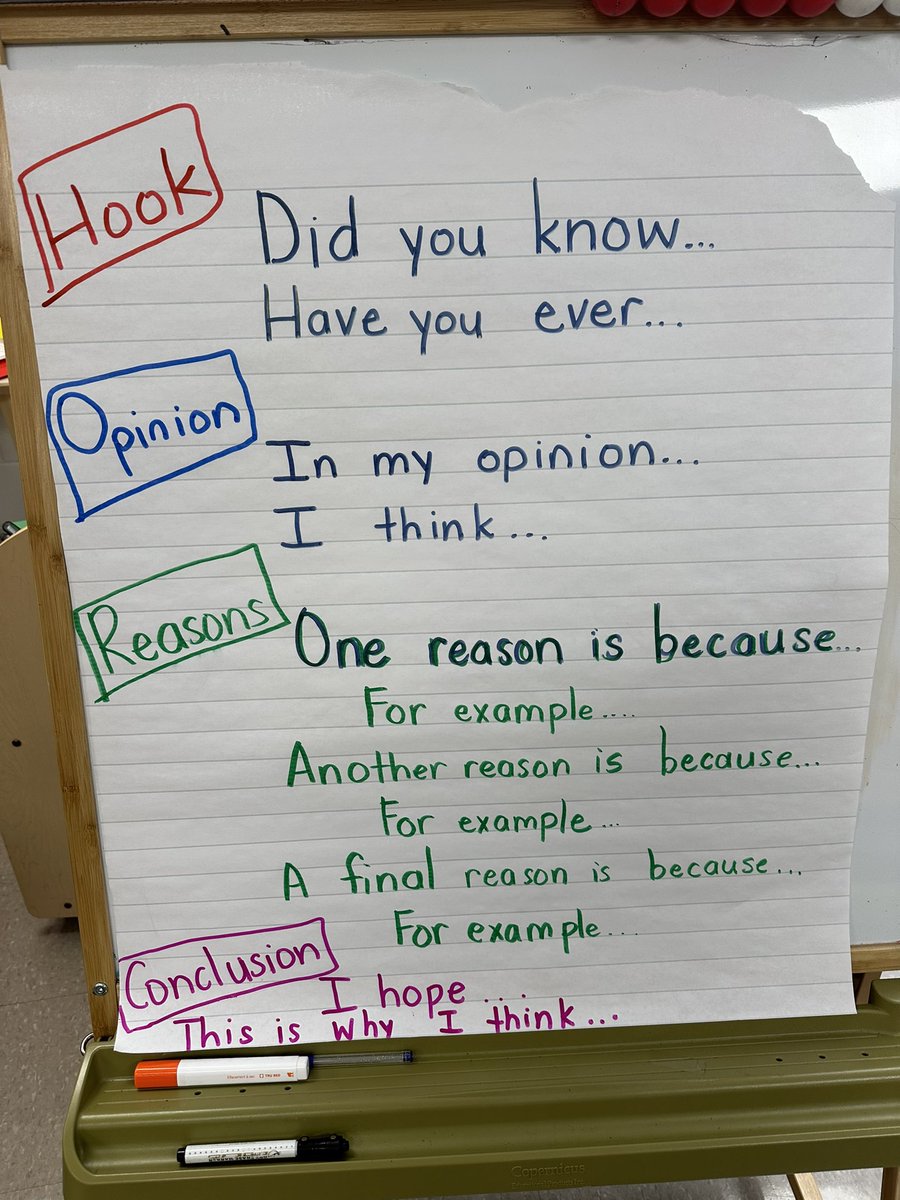 Hook
Did you know...
Have you ever...
Opinion
In my opinion...
I think...
Reasons
One reason is because...
For example....
Another reason is because...
For example...
A final reason is because...
For example...
Conclusion
I hope ....
This is why I think...
Copernicus